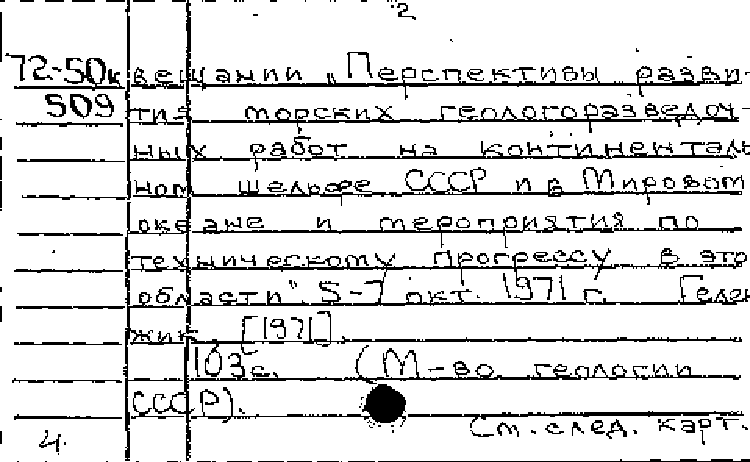 2
72-50к вещании „Перспективы разви-
509 тия морских геологоразведоч-
ных работ на континенталь
ном шельфе СССР и в Мировом
океане и мероприятия по
техническому прогрессу в это
области". 5-7 окт. 1971 г. Гелен
жик. [1971].
103с. (М-во геологии
СССР).
См. след. карт.
4.